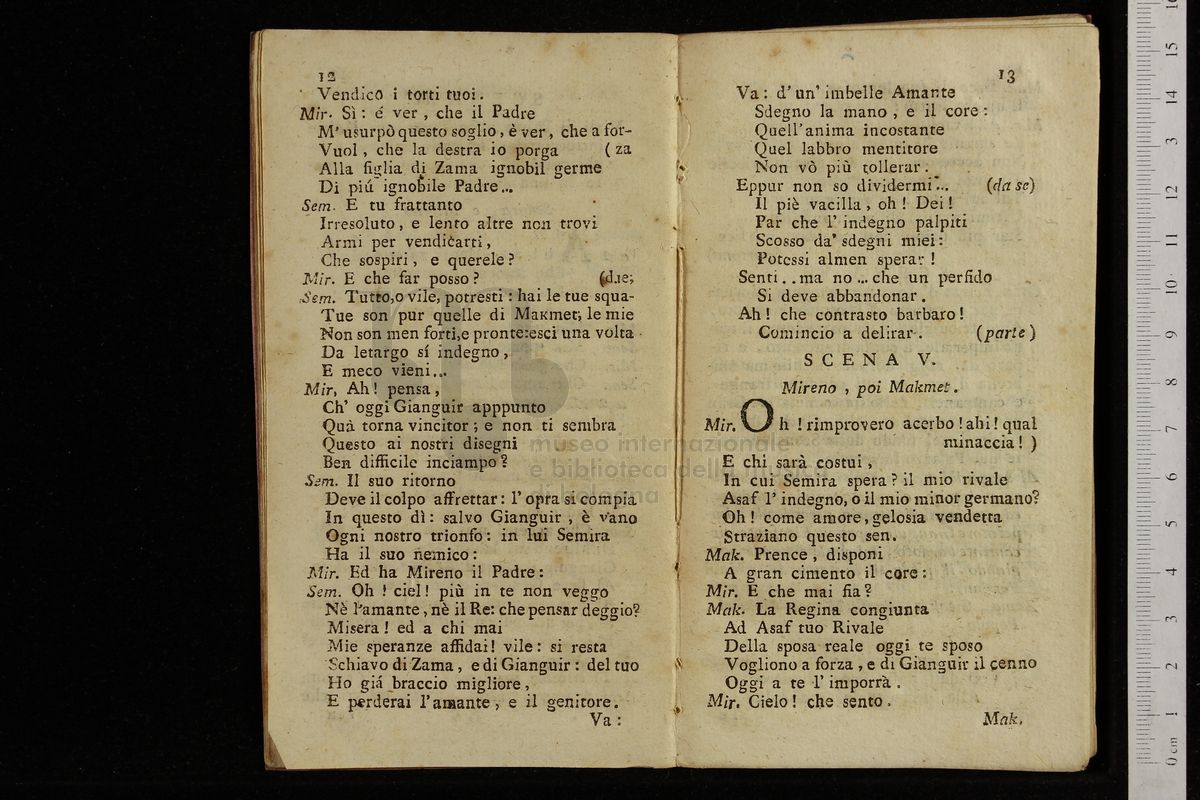 12
Vendico i torti tuoi.
Mir. Sì: é ver, che il Padre
M' usurpò questo soglio, è ver, che a for-
Vuol, che la destra io porga (za
Alla figlia di Zama ignobil germe
Di piú ignobile Padre...
Sem. E tu frattanto
Irresoluto, e lento altre non trovi
Armi per vendicarti,
Che sospiri, e querele?
Mir. E che far posso? (d.ie;
Sem. Tutto,o vile, potresti: hai le tue squa-
Tue son pur quelle di Makmet; le mie
Non son men forti,e pronte:esci una volta
Da letargo sí indegno,
E meco vieni...
Mir, Ah! pensa,
Ch' oggi Gianguir apppunto
Quà torna vincitor; e non ti sembra
Questo ai nostri disegni
Ben difficile inciampo?
Sem. Il suo ritorno
Deve il colpo affrettar: l' opra si compia
In questo dì: salvo Gianguir, è vano
Ogni nostro trionfo: in lui Semira
Ha il suo nemico:
Mir. Ed ha Mireno il Padre:
Sem. Oh! ciel! più in te non veggo
Nè l'amante, nè il Re: che pensar deggio?
Misera! ed a chi mai
Mie speranze affidai! vile: si resta
Schiavo di Zama, e di Gianguir: del tuo
Ho giá braccio migliore,
E perderai l'amante, e il genitore.
Va:
13
Va: d' un' imbelle Amante
Sdegno la mano, e il core:
Quell'anima incostante
Quel labbro mentitore
Non vò più tollerar.
Eppur non so dividermi... (da se)
Il piè vacilla, oh! Dei!
Par che l' indegno palpiti
Scosso da' sdegni miei:
Potessi almen sperar!
Senti..ma no...che un perfido
Si deve abbandonar.
Ah! che contrasto barbaro!
Comincio a delirar. (parte)
SCENA V.
Mireno, poi Makmet.
Mir. Oh! rimprovero acerbo! ahi! qual
minaccia! )
E chi sarà costui,
In cui Semira spera? il mio rivale
Asaf l' indegno, o il mio minor germano?
Oh! come amore, gelosia vendetta
Straziano questo sen.
Mak. Prence, disponi
A gran cimento il core:
Mir. E che mai fia?
Mak. La Regina congiunta
Ad Asaf tuo Rivale
Della sposa reale oggi te sposo
Vogliono a forza, e di Gianguir il cenno
Oggi a te l' imporrà.
Mir. Cielo! che sento.
Mak.
museo internazionale
e biblioteca della musica
di bologna